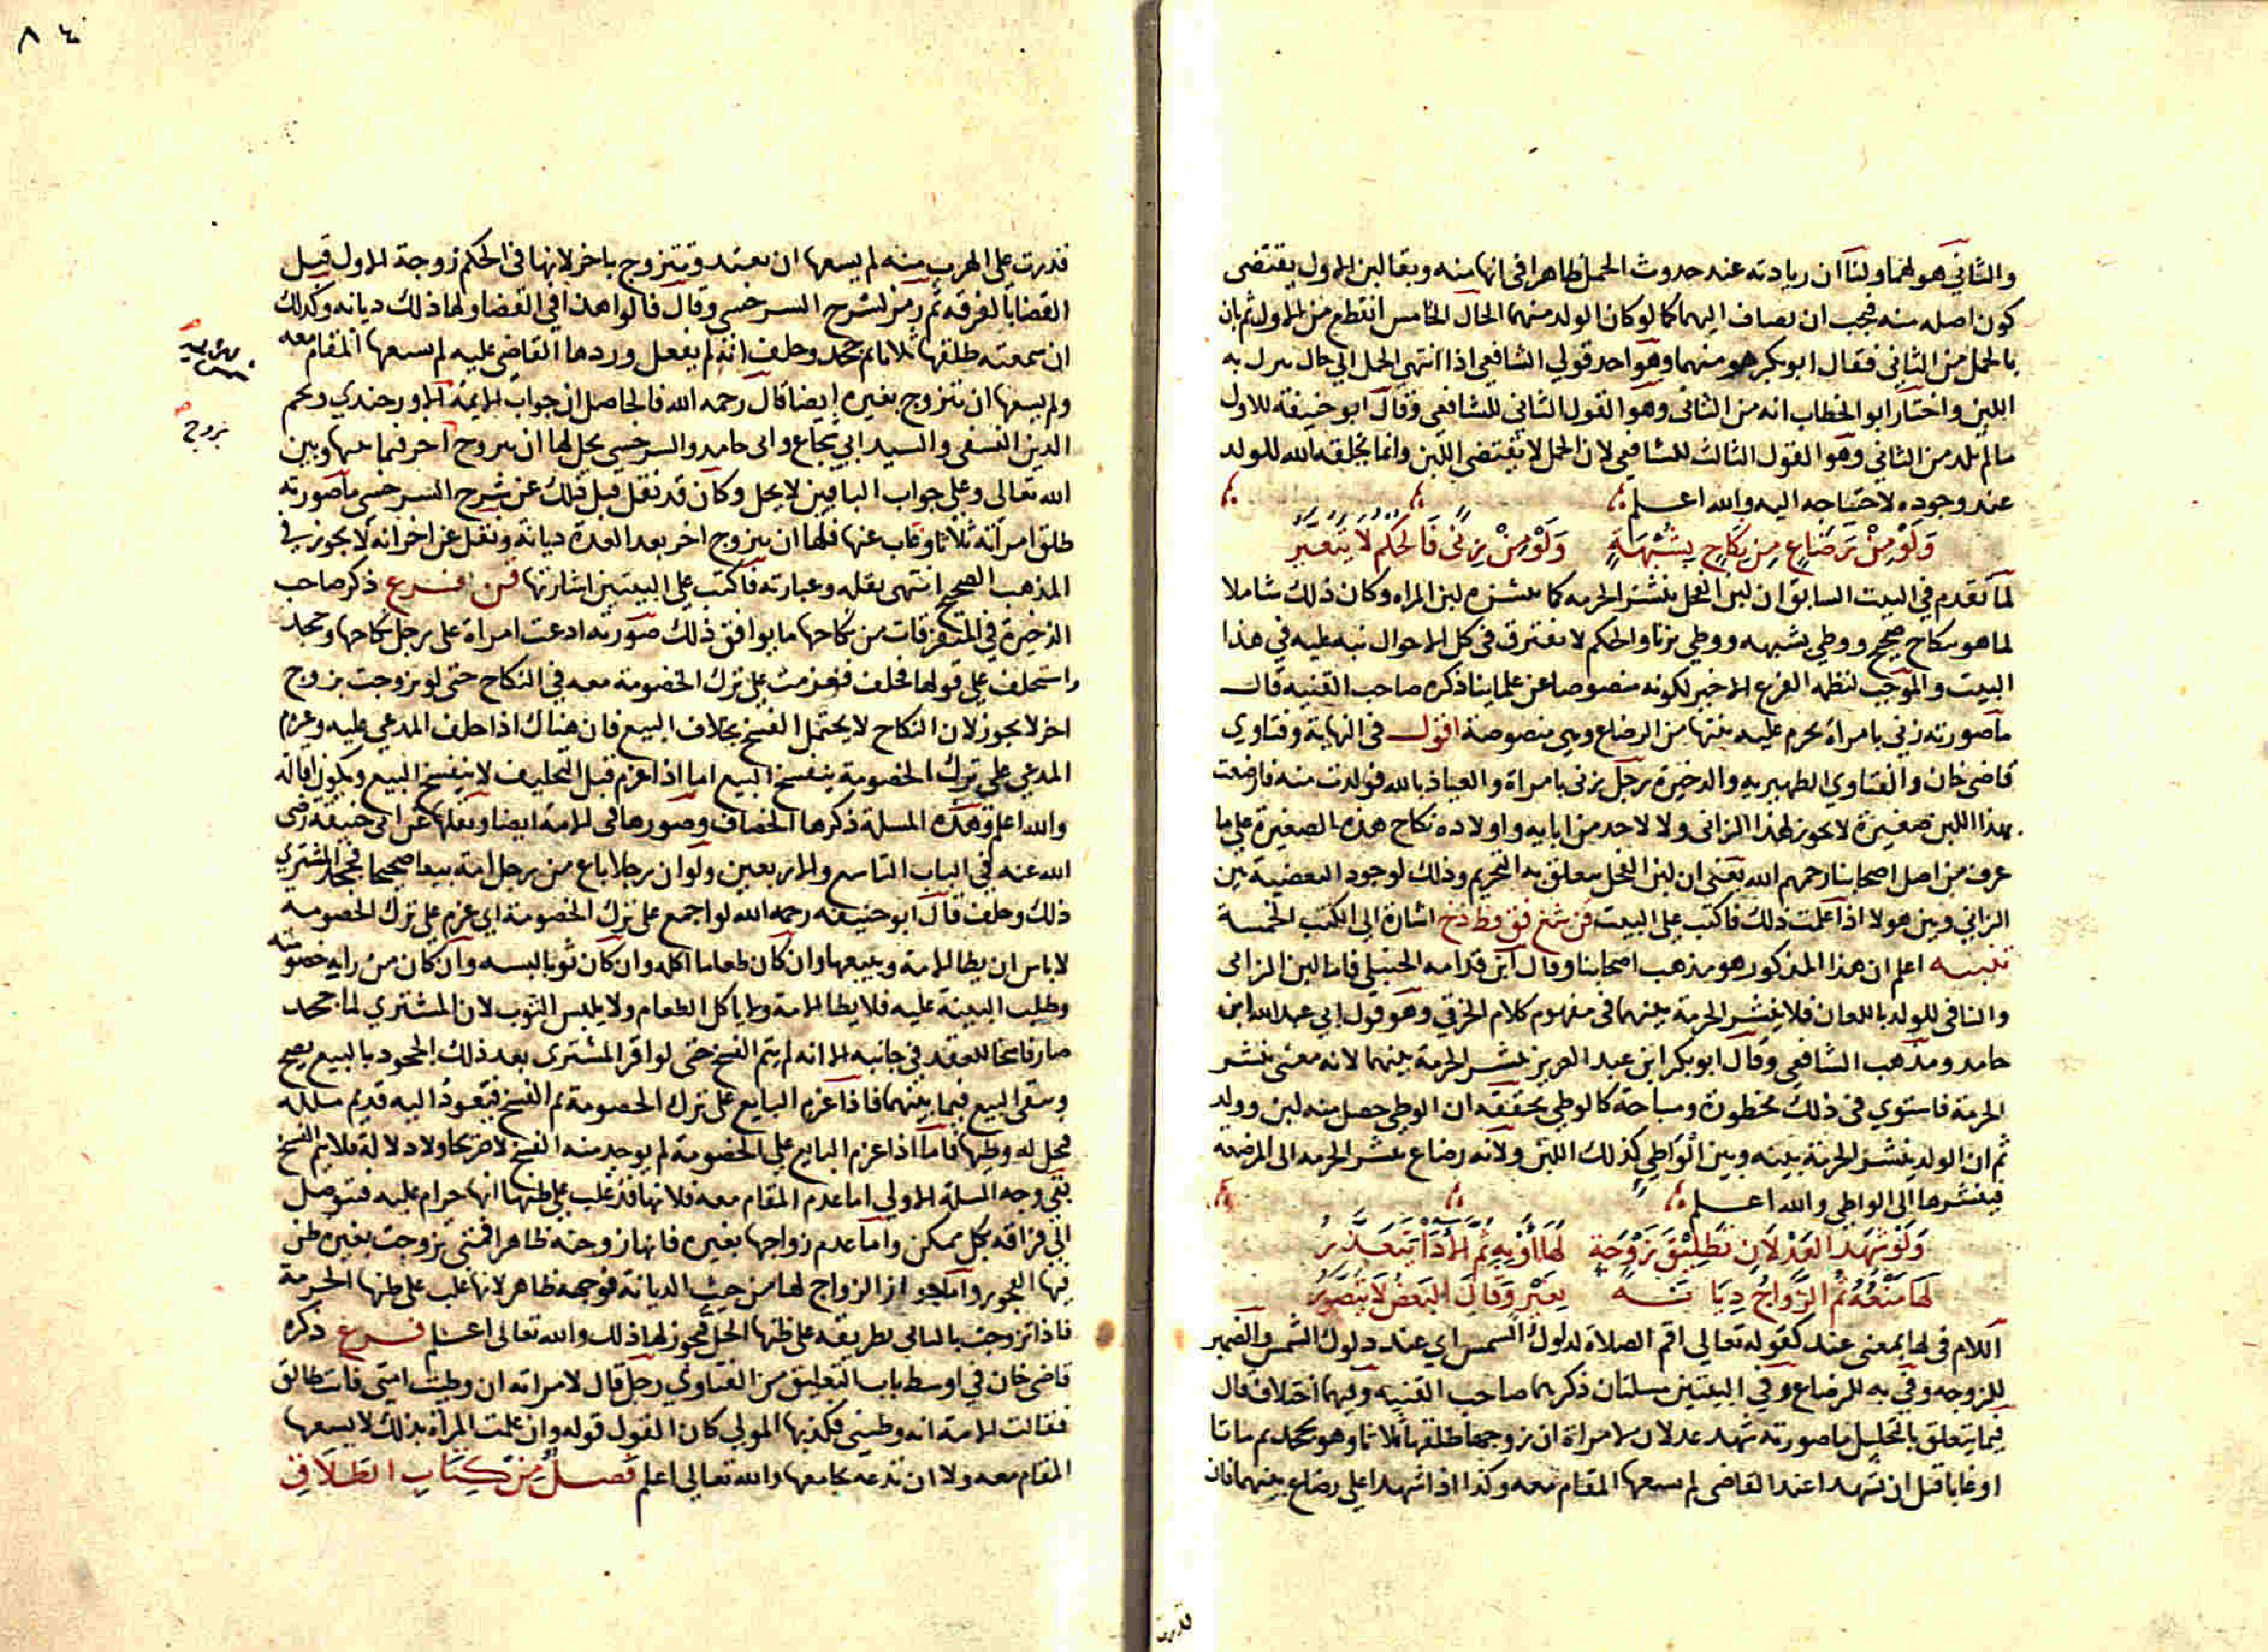 والثاني هو لهما ولنا ان زيادته عند حدوث الحمل ظاهر في انها منه وبقا لبن الاول يقتضي
كون اصله منه فيجب ان يضاف اليهما كما لو كان الولد منهما الحال الخامس انقطع من الاول ثم بان
بالحمل من الثاني فقال ابو بكر هو منهما وهو احد قولي الشافعي اذا انتهى الحمل الي حال ينزل به
اللبن واختار ابو الخطاب انه من الثاني وهو القول الثاني للشافعي وقال ابو حنيفة للاول
ما لم تلد من الثاني وهو القول الثالث للشافعي لان الحمل لا يقتضي اللبن وانما يخلقه الله للولد
عند وجوده لاحتياجه اليه والله اعلم
وَلَوْ مِنْ رَضَاعٍ مِن نِكَاحٍ بِشُبْهَةٍ وَلَوْ مِنْ زِنًى فَالحُكْمُ لَا يَتَغَيَّرُ
لما تقدم في البيت السابق ان لبن الفحل ينشر الحرمه كما ينشره لبن المراه وكان ذلك شاملا
لما هو بنكاح صحيح ووطي بشبهه ووطي بزنا والحكم لا يفترق في كل الاحوال نبه عليه في هذا
البيت والموجب لنظمه الفرع الاخير لكونه منصوصا عن علماينا ذكره صاحب القنيه قال
ما صورته زني بامراة يحرم عليه بنتها من الرضاع وهي منصوصة اقول في النهاية وفتاوي
قاضي خان والفتاوي الظهيريه والذخيرة رجل زنى بامراة والعياذ بالله فولدت منه فارضعت
بهذا اللبن صغيرة لا يجوز لهذا الزاني ولا لاحد من ابايه واولاده نكاح هذه الصغيرة علي ما
عرف من اصل اصحابنا رحمهم الله يعني ان لبن الفحل يتعلق به التحريم وذلك لوجود البعضية بين
الزاني وبين هولا اذا علمت ذلك فاكتب علي البيت فن شنع فق وظ ذخ اشارة الى الكتب الخمسة
تنبيه اعلم ان هذا المذكور هو مذهب اصحابنا وقال ابن قدامه الحنبلي فاما لبن الزاني
والنافي للولد باللعان فلا ينشر الحرمة بينهما في مفهوم كلام الخرقي وهو قول ابي عبد الله ابن
حامد ومذهب الشافعي وقال ابو بكر ابن عبد العزيز ينشر الحرمة بينهما لانه معنى ينشر
الحرمة فاستوي في ذلك محظورة ومباحة كالوطي يحققه ان الوطي حصل منه لبن وولد
ثم ان الولد ينشر الحرمة بينه وبين الواطي كذلك اللبن ولانه رضاع ينشر الحرمه الى المرضعه
فينشرها الى الواطي والله اعلم
وَلَوْ شَهِدَ العَدْلَانِ تَطْلِيقَ زَوْجَةٍ لَهَا أَوْ بِهِ ثُمَّ الأَدَا يَتَعَذَّرُ
لَهَا مَنْعُهُ ثُمَّ الزَّوَاجُ دِيَانَةً بِغَيْرٍ وَقَالَ البَعْضُ لَا يُتَصَوَّرُ
اللام في لها بمعنى عند كقوله تعالي اقم الصلاة لدلوك الشمس اي عند دلوك الشمس والضمير
للزوجه وفي به للرضاع وفي البيتين مسلتان ذكرهما صاحب القنيه وفيهما اختلاف قال
فيما يتعلق بالتحليل ما صورته شهد عدلان لامراة ان زوجها طلقها ثلاثا وهو يجحد ثم ماتا
او غابا قبل ان تشهدا عند القاضي لم يسعها المقام معه وكذا اذا شهدا علي رضاع بينهما فان
قدرت
٨٤
قدرت علي الهرب منه لم يسعها ان تعتد وتتزوج باخر لانها في الحكم زوجة الاول قبل
القضا بالفرقه ثم رمز لشرح السرخسي وقال قالوا هذا في القضا ولها ذلك ديانه وكذلك
ان سمعته طلقها ثلاثا ثم جحد وحلف انه لم يفعل وردها القاضي عليه لم يسعها المقام معه
ولم يسعها ان تتزوج بغيره ايضا قال رحمه الله فالحاصل ان جواب الايمة الاورجندي ونجم
الدين النسفي والسيد ابي شجاع وابى حامد والسرخسي يحل لها ان تتزوج اخر فيما بينها وبين
الله تعالى وعلي جواب الباقين لا يحل وكان قد نقل قبل ذلك عن شرح السرخسي ما صورته
طلق امراته ثلاثا وغاب عنها فلها ان تتزوج اخر بعد العدة ديانة ونقل عن اخر انه لا يجوز في
المذهب الصحيح انتهى بقله وعبارته فاكتب علي البيتين اشارتها فن فرع ذكر صاحب
الذخيرة في المتفرقات من نكاحها ما يوافق ذلك صورته ادعت امراة على رجل نكاحها وجحد
واستحلف علي قولها فحلف فعزمت علي ترك الخصومة معه في النكاح حتى لو تزوجت بزوج
اخر لا يجوز لان النكاح لا يحتمل الفسخ بخلاف البيع فان هناك اذا حلف المدعي عليه وعزم
المدعي علي ترك الخصومة ينفسخ البيع اما اذا عزم قبل التحليف لا ينفسخ البيع ويكون اقالة
والله اعلم وهذه المسلة ذكرها الخصاف وصورها في الامة ايضا ونقلها عن ابي حنيفة رضي
الله عنه في الباب التاسع والاربعين ولو ان رجلا باع من رجل امة بيعا صحيحا فجحد المشتري
ذلك وحلف قال ابو حنيفه رحمه الله لو اجمع على ترك الخصومة اي عزم علي ترك الخصومه
لا باس ان يطا الامة ويبيعها وان كان طعاما اكله وان كان ثوبا لبسه وان كان من رايه خصومته
وطلب البينة عليه فلا يطا الامة ولا ياكل الطعام ولا يلبس الثوب لان المشتري لما جحد
صار فاسخا للعقد في جانبه الا انه لم يتم الفسخ حتى لو اقر المشتري بعد ذلك الجحود بالبيع يصح
وبقي البيع فيما بينهما فاذا عزم البايع على ترك الخصومة تم الفسخ فيعود اليه قديم ملكه
فحل له وطيها فاما اذا عزم البايع علي الخصومة لم يوجد منه الفسخ لا صريحا ولا دلالة فلا يتم الفسخ
بقي وجه المسلة الاولي اما عدم المقام معه فلانها قد غلب علي ظنها انها حرام عليه فتتوصل
الي فراقه بكل ممكن واما عدم زواجها بغيره فانها زوجته ظاهرا فمتى تزوجت بغيره ظن
فيها الفجور واما جواز الزواج لها من حيث الديانة فوجهه ظاهر لانها غلب على ظنها الحرمة
فاذا تزوجت بالثاني بطريقه على ظنها الحل فيجوز لها ذلك والله تعالى اعلم فرع ذكره
قاضي خان في اوسط باب التعليق من الفتاوي رجل قال لامراته ان وطيت امتي فانت طالق
فقالت الامة انه وطيني فكذبها المولي كان القول قوله وان علمت المراة بذلك لا يسعها
المقام معه ولا ان تدعه يجامعها والله تعالى اعلم فصل من كتاب الطلاق
تزوج